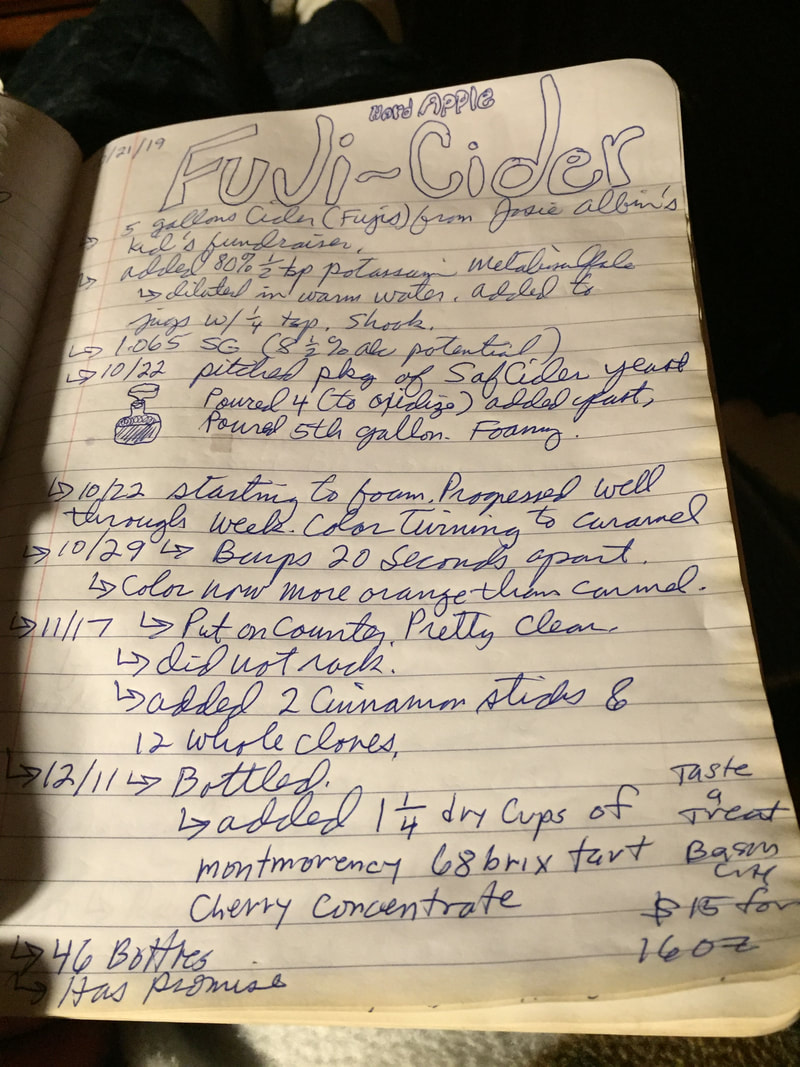 Hard Apple
/21/19
Fuji~Cider
5 gallons Cider (Fujis) from Josie Albin's
kid's fundraiser.
↳ added 80% ½ tsp potassium metabisulfate
↳ diluted in warm water. added to
jugs w/ ¼ tsp. Shook.
↳ 1.065 SG (8 ½% alc potential)
↳ 10/22 pitched pkg of SafCider yeast
Poured 4 (to oxidize) added yeast,
Poured 5th gallon. Foamy.
↳ 10/22 starting to foam. Progressed well
through week. Color turning to caramel
↳ 10/29 ↳ Burps 20 seconds apart.
↳ Color now more orange than carmel.
↳ 11/17 ↳ Put on Counter. Pretty clear.
↳ did not rack.
↳ added 2 Cinnamon sticks &
12 whole cloves.
↳ 12/11 ↳ Bottled.
↳ added 1 ¼ dry cups of
montmorency 68 brix tart
Cherry Concentrate
Taste
a
Treat
Basin
City
$15 for
16 oz
↳ 46 Bottles
↳ Has Promise